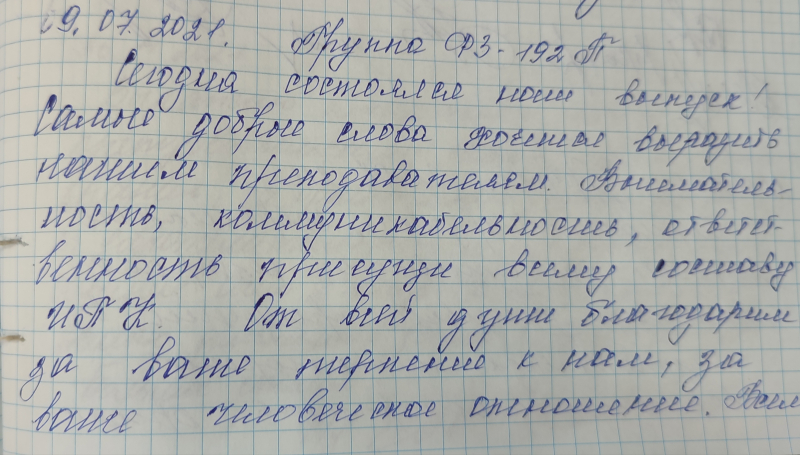 09.07.2021. Группа ФЗ-192П
Сегодня состоялся наш выпуск!
Самые добрые слова хочется выразить
нашим преподавателям. Вниматель-
ность, коммуникабельность, ответст-
венность присущи всему составу
ИПК. От всей души благодарим
за ваше терпение к нам, за
ваше человеческое отношение. Вам